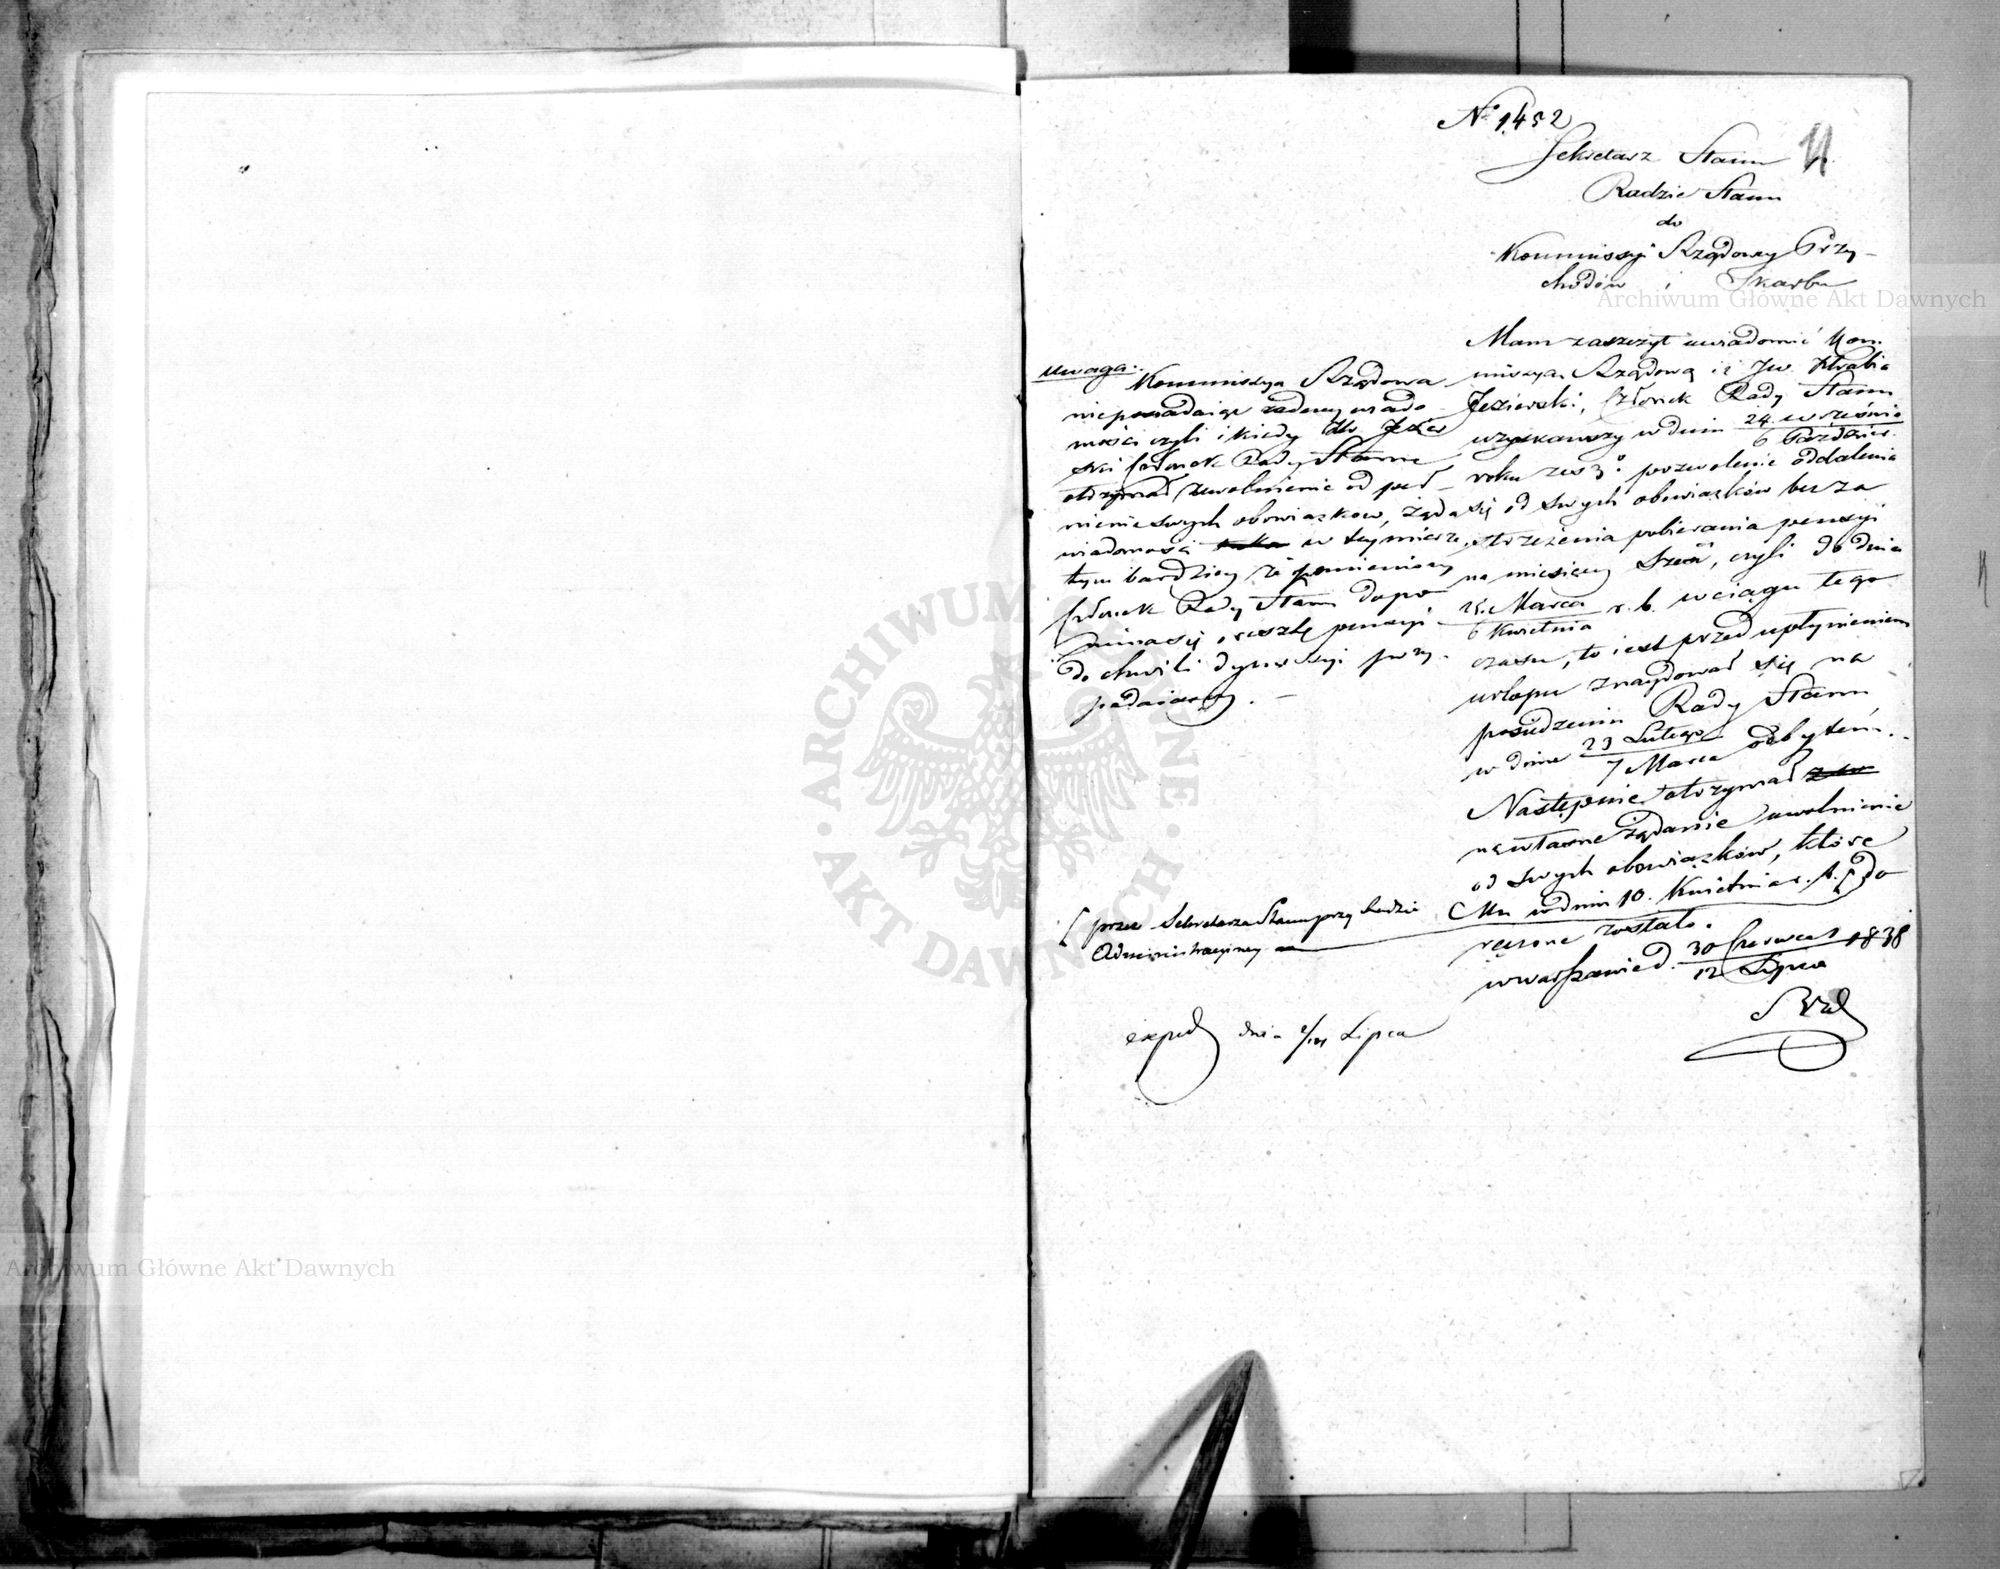 No 1452
Sekretarz Stanu p.
11
Radzie Stanu
do
Kommissyi Rządowey Przy-
chodów i Skarbu
Mam zaszczyt uwiadomić Kom-
missyą Rządową iż Jw. Hrabia
Jezierski, Członek Rady Stanu
uzyskawszy w dniu 24 września
6 Paździer.
roku zesz: pozwolenie oddalenia
się od swych obowiązków bez za
strzeżenia pobierania pensyi
na miesięcy sześć, czyli do dnia
25 Marca
6 Kwietnia r. b. w ciągu tego
czasu, to iest przed upłynieniem
urlopu znaydował się na
posiedzeniu Rady Stanu
w dniu 23 Lutego
7 Marca odbytem.
Następnie otrzymał
na własne żądanie uwolnienie
od swych obowiązków, które
Mu w dniu 10. Kwietnia r. b. [ do
ręczone zostało.
w Warszawie d. 30 Czerwca 1838
12 Lipca
Uwaga:
Kommissya Rządowa
nieposiadaiąc żadney wiado
mości czyli i kiedy Hr. Jezier
ski Członek Rady Stanu
otrzymał uwolnienie od peł-
nienia swych obowiązków, żąda
wiadomości w tey mierze,
tym bardziey że pomieniony
Członek Rady Stanu dopo
mina się o resztę pensyi
do chwili dymissyi przy-
padaiącey. -
[ przez Sekretarza Stanu przy Radzie
Administracyiney
exped dnia 2/14 Lipca
Archiwum Główne Akt Dawnych
Archiwum Główne Akt Dawnych
ARCHIWUM GŁÓWNE · AKT DAWNYCH ·